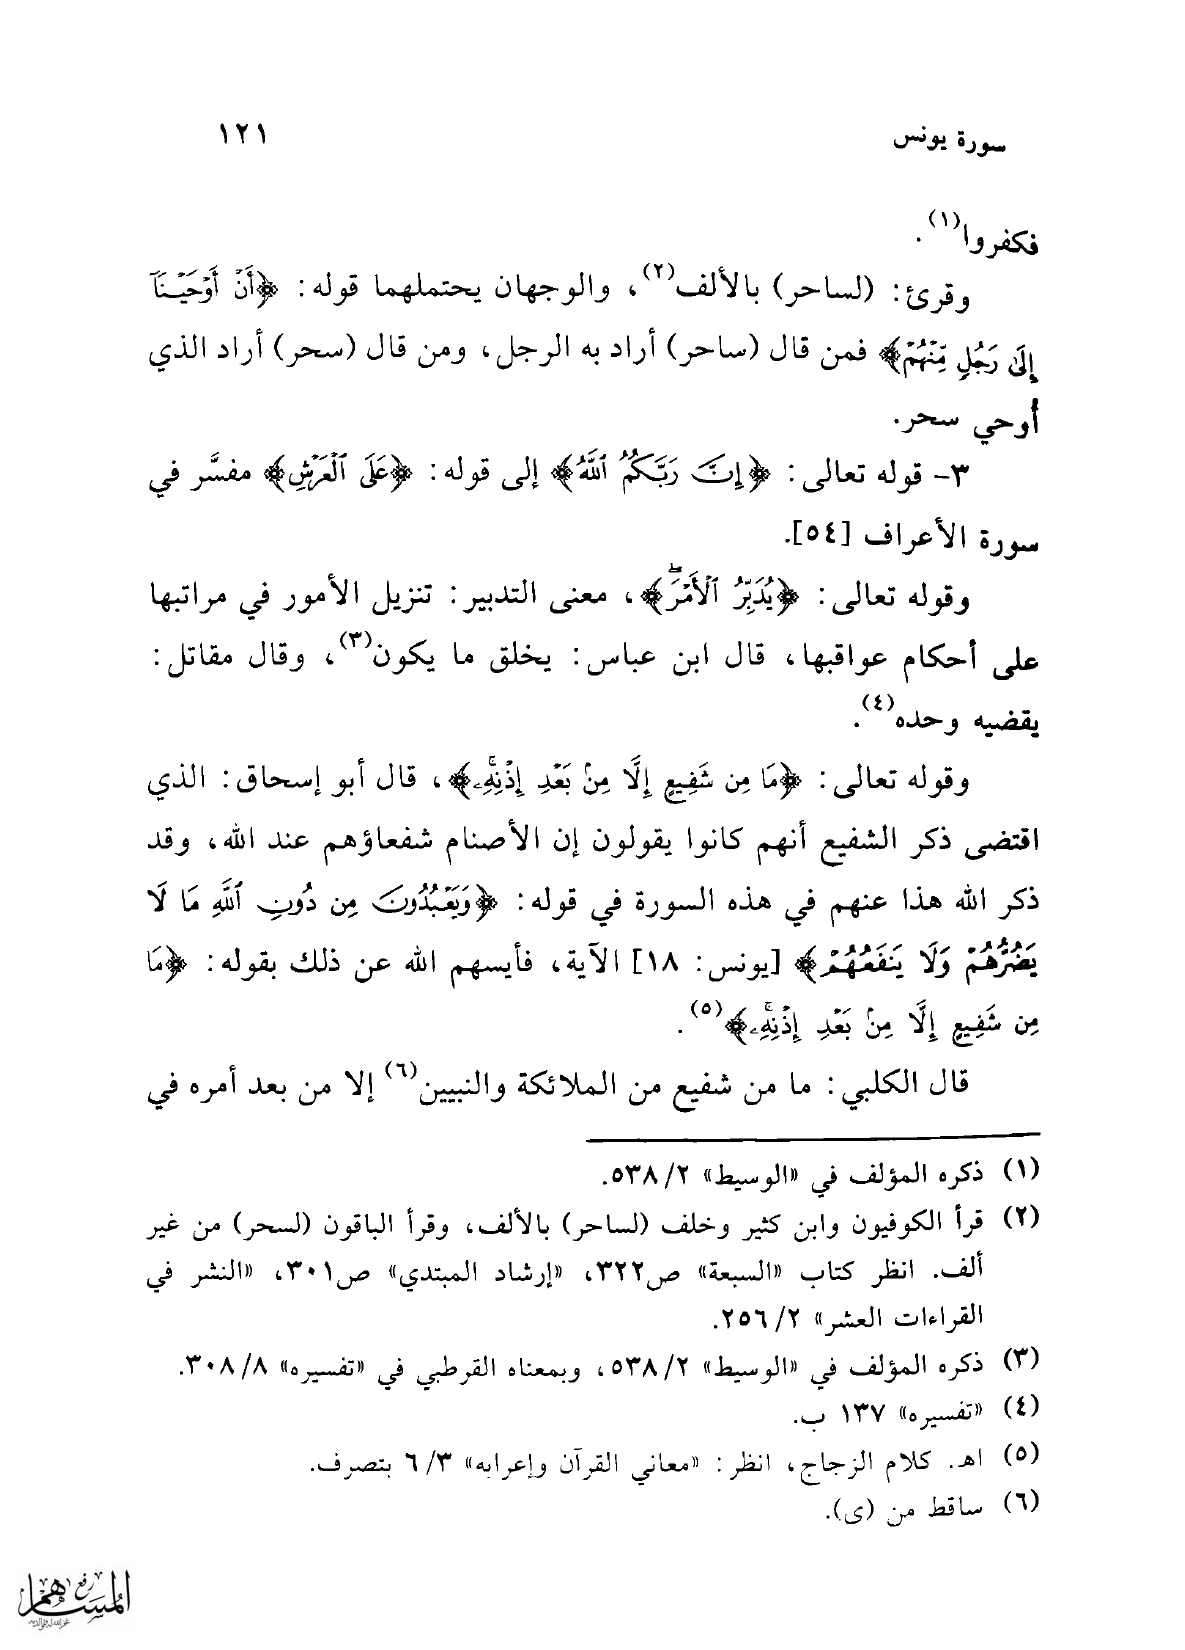 سورة يونس ١٢١
فكفروا(١).
وقرئ: (لساحر) بالألف(٢)، والوجهان يحتملهما قوله: ﴿أَنْ أَوْحَيْنَآ
إِلَىٰ رَجُلٍ مِّنْهُمْ﴾ فمن قال (ساحر) أراد به الرجل، ومن قال (سحر) أراد الذي
أوحي سحر.
٣- قوله تعالى: ﴿إِنَّ رَبَّكُمُ ٱللَّهُ﴾ إلى قوله: ﴿عَلَى ٱلْعَرْشِ﴾ مفسَّر في
سورة الأعراف [٥٤].
وقوله تعالى: ﴿يُدَبِّرُ ٱلْأَمْرَۖ﴾، معنى التدبير: تنزيل الأمور في مراتبها
على أحكام عواقبها، قال ابن عباس: يخلق ما يكون(٣)، وقال مقاتل:
يقضيه وحده(٤).
وقوله تعالى: ﴿مَا مِن شَفِيعٍ إِلَّا مِنۢ بَعْدِ إِذْنِهِۦۚ﴾، قال أبو إسحاق: الذي
اقتضى ذكر الشفيع أنهم كانوا يقولون إن الأصنام شفعاؤهم عند الله، وقد
ذكر الله هذا عنهم في هذه السورة في قوله: ﴿وَيَعْبُدُونَ مِن دُونِ ٱللَّهِ مَا لَا
يَضُرُّهُمْ وَلَا يَنفَعُهُمْ﴾ [يونس: ١٨] الآية، فأيسهم الله عن ذلك بقوله: ﴿مَا
مِن شَفِيعٍ إِلَّا مِنۢ بَعْدِ إِذْنِهِۦۚ﴾(٥).
قال الكلبي: ما من شفيع من الملائكة والنبيين(٦) إلا من بعد أمره في
(١) ذكره المؤلف في «الوسيط» ٢/ ٥٣٨.
(٢) قرأ الكوفيون وابن كثير وخلف (لساحر) بالألف، وقرأ الباقون (لسحر) من غير
ألف. انظر كتاب «السبعة» ص٣٢٢، «إرشاد المبتدي» ص٣٠١، «النشر في
القراءات العشر» ٢/ ٢٥٦.
(٣) ذكره المؤلف في «الوسيط» ٢/ ٥٣٨، وبمعناه القرطبي في «تفسيره» ٨/ ٣٠٨.
(٤) «تفسيره» ١٣٧ ب.
(٥) اهـ. كلام الزجاج، انظر: «معاني القرآن وإعرابه» ٣/ ٦ بتصرف.
(٦) ساقط من (ى).
رفع
المساهم